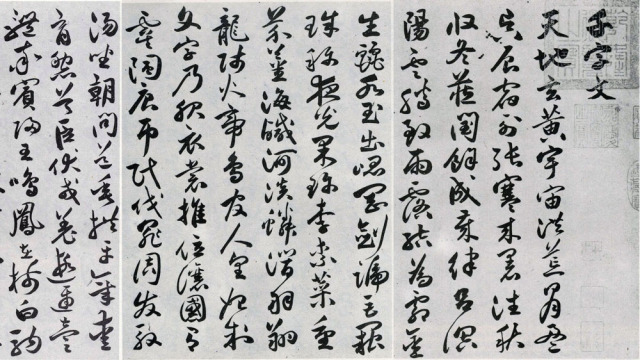 千字文
天地玄黃宇宙洪荒日月盈
昃辰宿列張寒來暑往秋
收冬藏閏餘成歲律呂調
陽雲騰致雨露結為霜金
生麗水玉出崑岡劍號巨闕
珠稱夜光果珍李柰菜重
芥薑海鹹河淡鱗潛羽翔
龍師火帝鳥官人皇始制
文字乃服衣裳推位讓國有
虞陶唐弔民伐罪周發殷
湯坐朝問道垂拱平章愛
育黎首臣伏戎羌遐邇壹
體率賓歸王鳴鳳在樹白駒